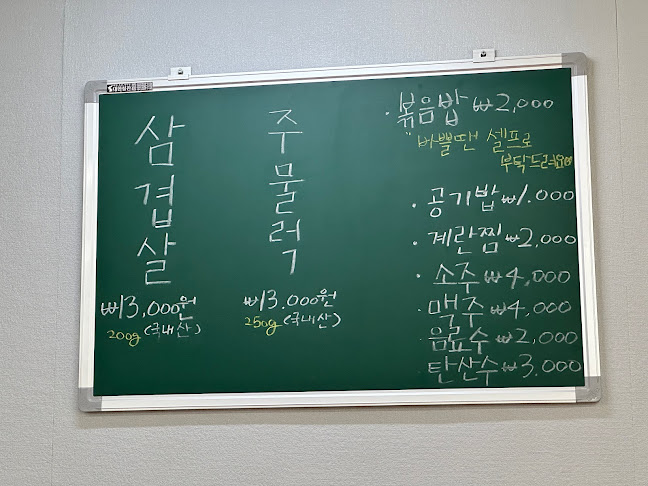 삼겹살
₩13,000원
200g (국내산)
주물럭
₩13.000원
250g (국내산)
· 볶음밥 ₩2,000
바쁠땐 셀프로
부탁드려요
· 공기밥 ₩1.000
· 계란찜 ₩2,000
· 소주 ₩4,000
· 맥주 ₩4,000
음료수 ₩2,000
탄산수 ₩3.000